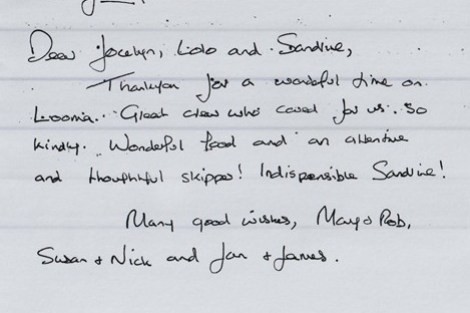 Dear Jocelyn, Lolo and Sandrine,
Thankyou for a wonderful time on
Loomia. Great crew who cared for us so
kindly. Wonderful food and an attentive
and thoughtful skipper! Indispensible Sandrine!
Many good wishes, Mary & Rob,
Susan & Nick and Jan & James.